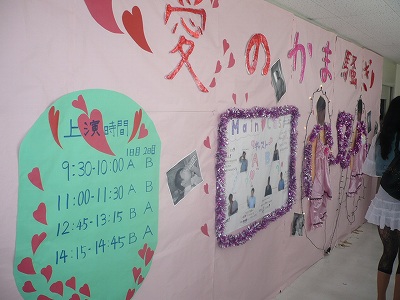 愛のから騒ぎ
上演時間
1日目 2日目
9:30-10:00 A B
11:00-11:30 A B
12:45-13:15 B A
14:15-14:45 B A
Main Cast